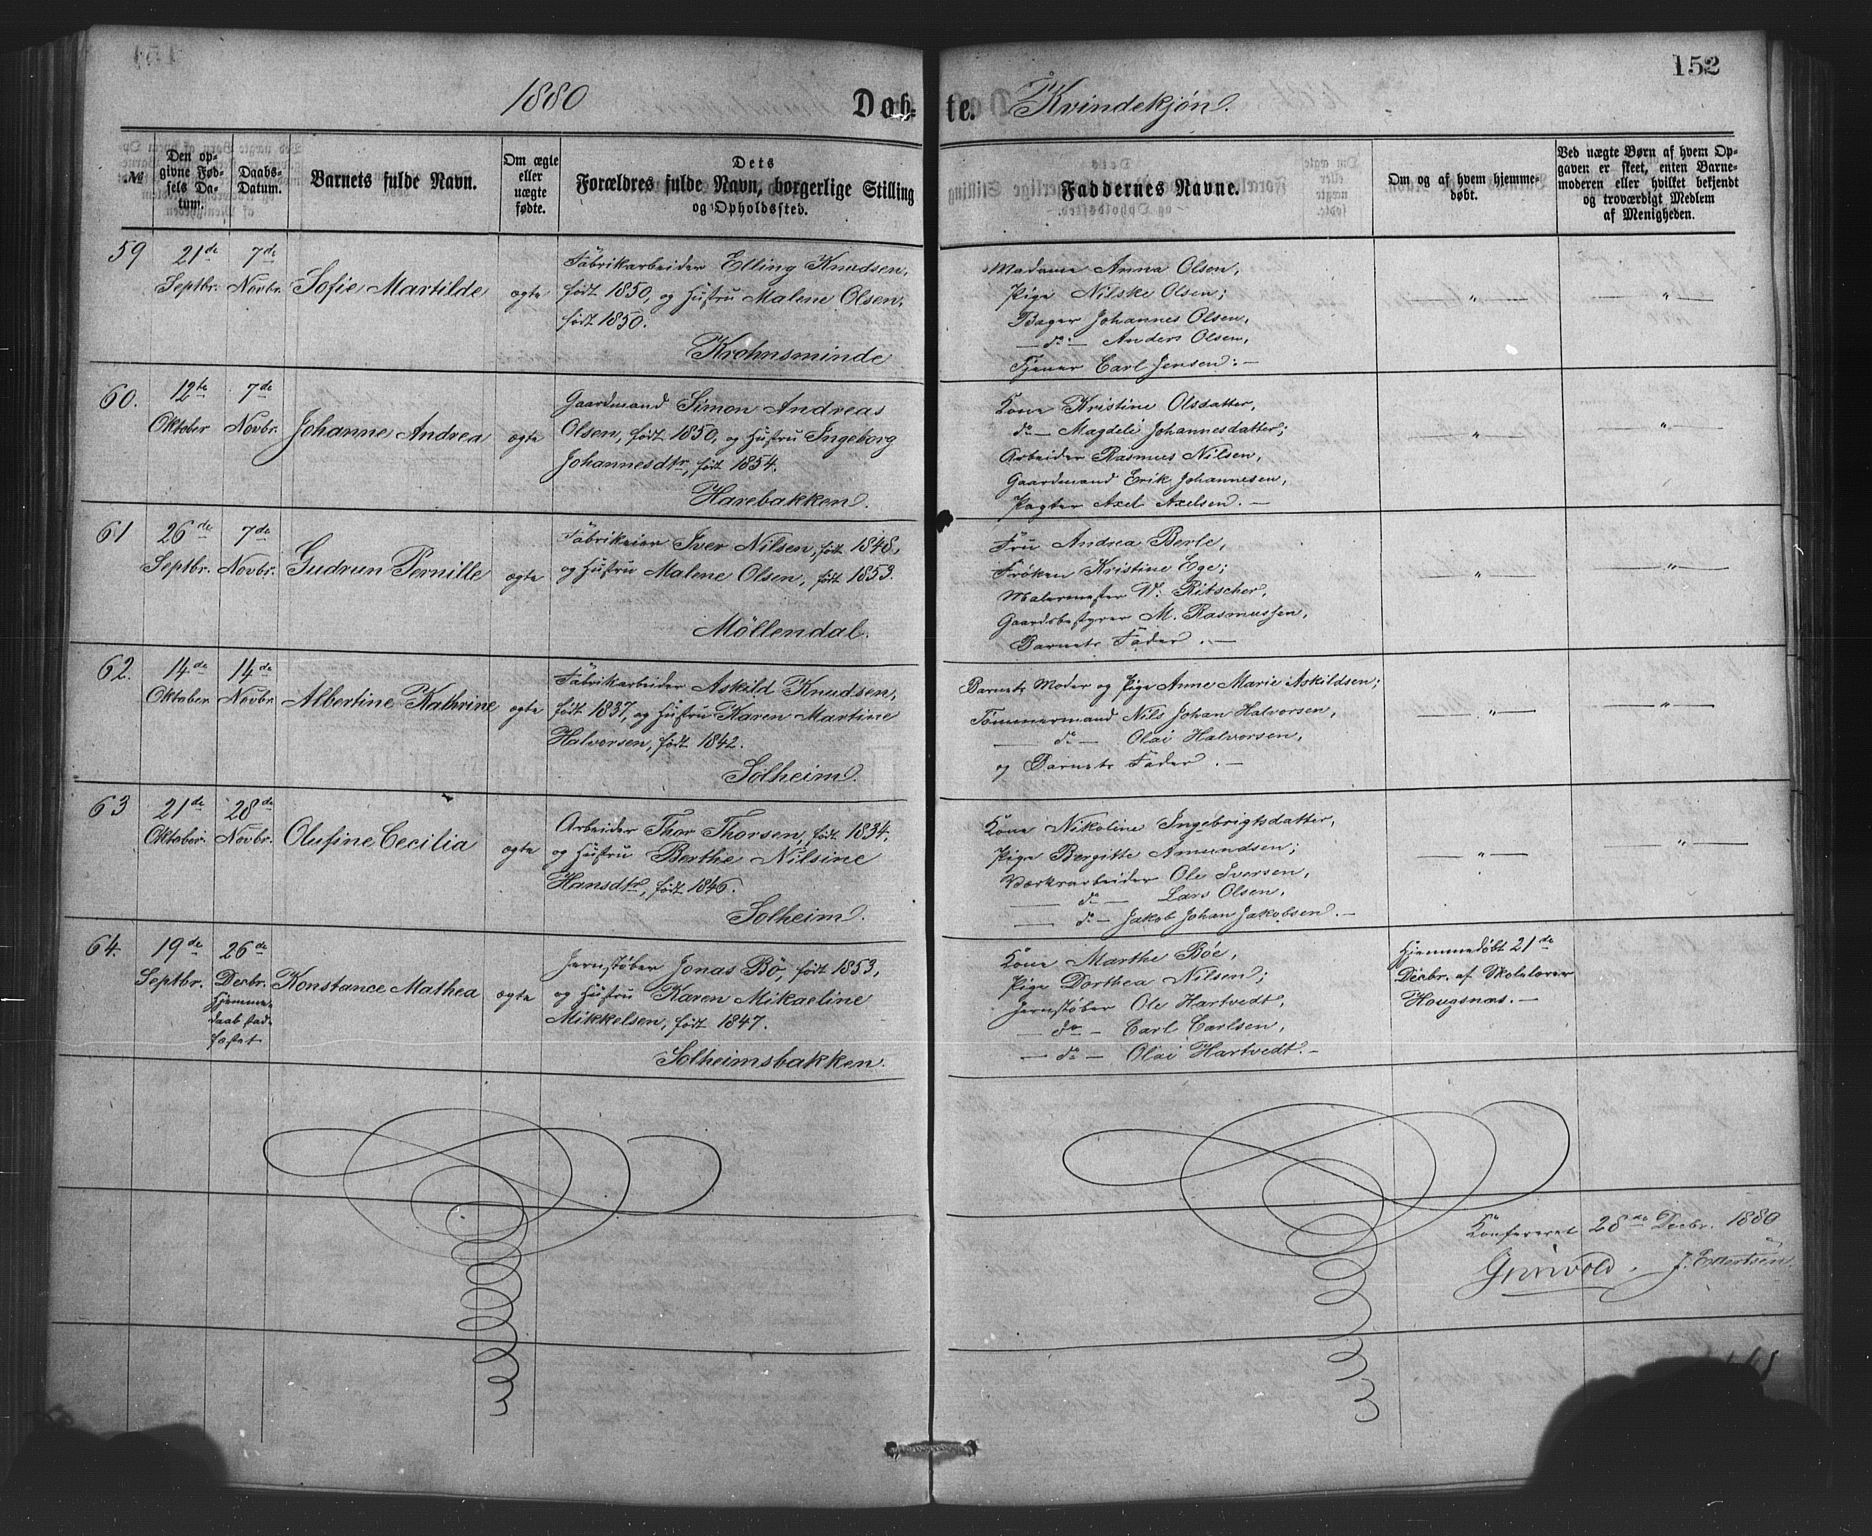 152
1880 Døb-
te. Kvindekjøn.
№
Den op-
givne Fød-
sels Da-
tum.
Daabs-
Datum.
Barnets fulde Navn.
Om ægte
eller
uægte
fødte.
Dets
Forældres fulde Navn, borgerlige Stilling
og Opholdssted.
Faddernes Navne.
Om og af hvem hjemme-
døbt.
Ved uægte Børn af hvem Op-
gaven er skeet, enten Barne-
moderen eller hvilket bekjendt
og troværdigt Medlem
af Menigheden.
59
21de
Septbr.
7de
Novbr.
Sofie Martilde
ægte
Fabrikarbeider Elling Knudsen,
født 1850, og Hustru Malene Olsen,
født 1850.
Krohnsminde
Madame Anna Olsen,
Pige Nilske Olsen;
Bager Johannes Olsen,
— do — Anders Olsen,
Tjener Carl Jensen. —
— " —
— " —
60.
12te
Oktober
7de
Novbr.
Johanne Andrea
ægte
Gaardmand Simon Andreas
Olsen, født 1850, og Hustru Ingeborg
Johannesdtr, født 1854.
Harebakken.
Kone Kristine Olsdatter,
do — Magdeli Johannesdatter;
Arbeider Rasmus Nilsen,
Gaardmand Erik Johannesen,
Pagter Axel Axelsen. —
— " —
— " —
61
26de
Septbr.
7de
Novbr.
Gudrun Pernille
ægte
Fabrikeier Iver Nilsen, født 1848,
og Hustru Malene Olsen, født 1853.
Möllendal.
Fru Andrea Berle,
Frøken Kristine Ege;
Malermester W. Ritscher,
Gaardsbestyrer M. Rasmussen,
Barnets Fader. —
— " —
— " —
62.
14de
Oktober
14de
Novbr.
Albertine Kathrine
ægte
Fabrikarbeider Askild Knudsen,
født 1837, og Hustru Karen Martine
Halvorsen, født 1842.
Solheim.
Barnets Moder og Pige Anne Marie Askildsen;
Tømmermand Nils Johan Halvorsen,
— do — Olai Halvorsen,
og Barnets Fader. —
— " —
— " —
63
21de
Oktober.
28de
Novbr.
Olufine Cecilia
ægte
Arbeider Thor Thorsen, født 1834,
og Hustru Berthe Nilsine
Hansdtr, født 1846.
Solheim.
Kone Nikoline Ingebrigtsdatter,
Pige Bergitte Amundsen;
Værksarbeider Ole Iversen,
— do — Lars Olsen,
— do — Jakob Johan Jakobsen. —
— " —
— " —
64.
19de
Septbr.
26de
Decbr.
Hjemme-
daab stad-
fæstet
Konstance Mathea
ægte
Jernstøber Jonas Bö, født 1853,
og Hustru Karen Mikaeline
Mikkelsen, født 1847.
Solheimsbakken.
Kone Marthe Böe,
Pige Dorthea Nilsen;
Jernstøber Ole Hartvedt,
— do — Carl Carlsen,
— do — Olai Hartvedt. —
Hjemmedøbt 21de
Decbr. af Skolelærer
Hougsnæs. —
Konfereret 28de Decbr. 1880
Grinvold. J. Ellertsen.